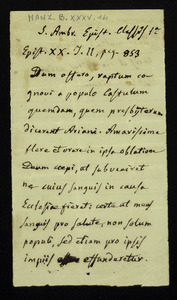 MANZ. B. XXXV. 14
S. Ambr. Epist. Classis 1ª
Epist. XX. T. II, pag. 853
Dum offero, raptum co-
gnovi a populo Castulum
quemdam, quem presbyterum
dicerent Ariani. Amarissime
flere et orare in ipsa oblatione
Deum coepi, ut subveniret
ne cuius sanguis in causa
Ecclesiae fieret: certe ut meus
sanguis pro salute, non solum
populi, sed etiam pro ipsis
impiis effunderetur.